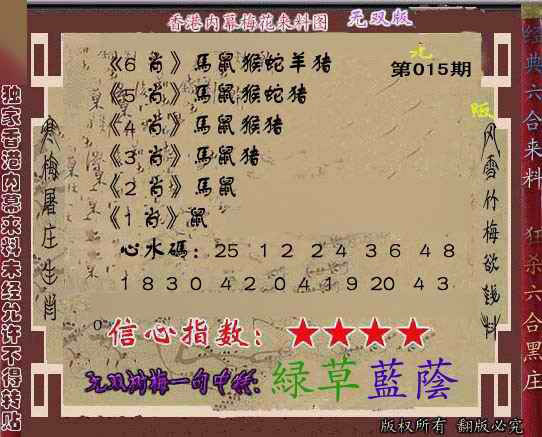 香港内幕梅花来料图 无双版
第015期
《6 肖》馬鼠猴蛇羊猪
《5 肖》馬鼠猴蛇猪
《4 肖》馬鼠猴猪
《3 肖》馬鼠猪
《2 肖》馬鼠
《1 肖》鼠
心水碼：25 12 24 36 48
18 30 42 04 19 20 43
信心指数：★★★★
无双版梅一句中特：綠草藍蔭
版权所有 翻版必究
独家香港内幕来料未经允许不得转贴
寒梅屠庄生肖
风雪竹梅欲钱料
经典六合来料 狂杀六合黑庄